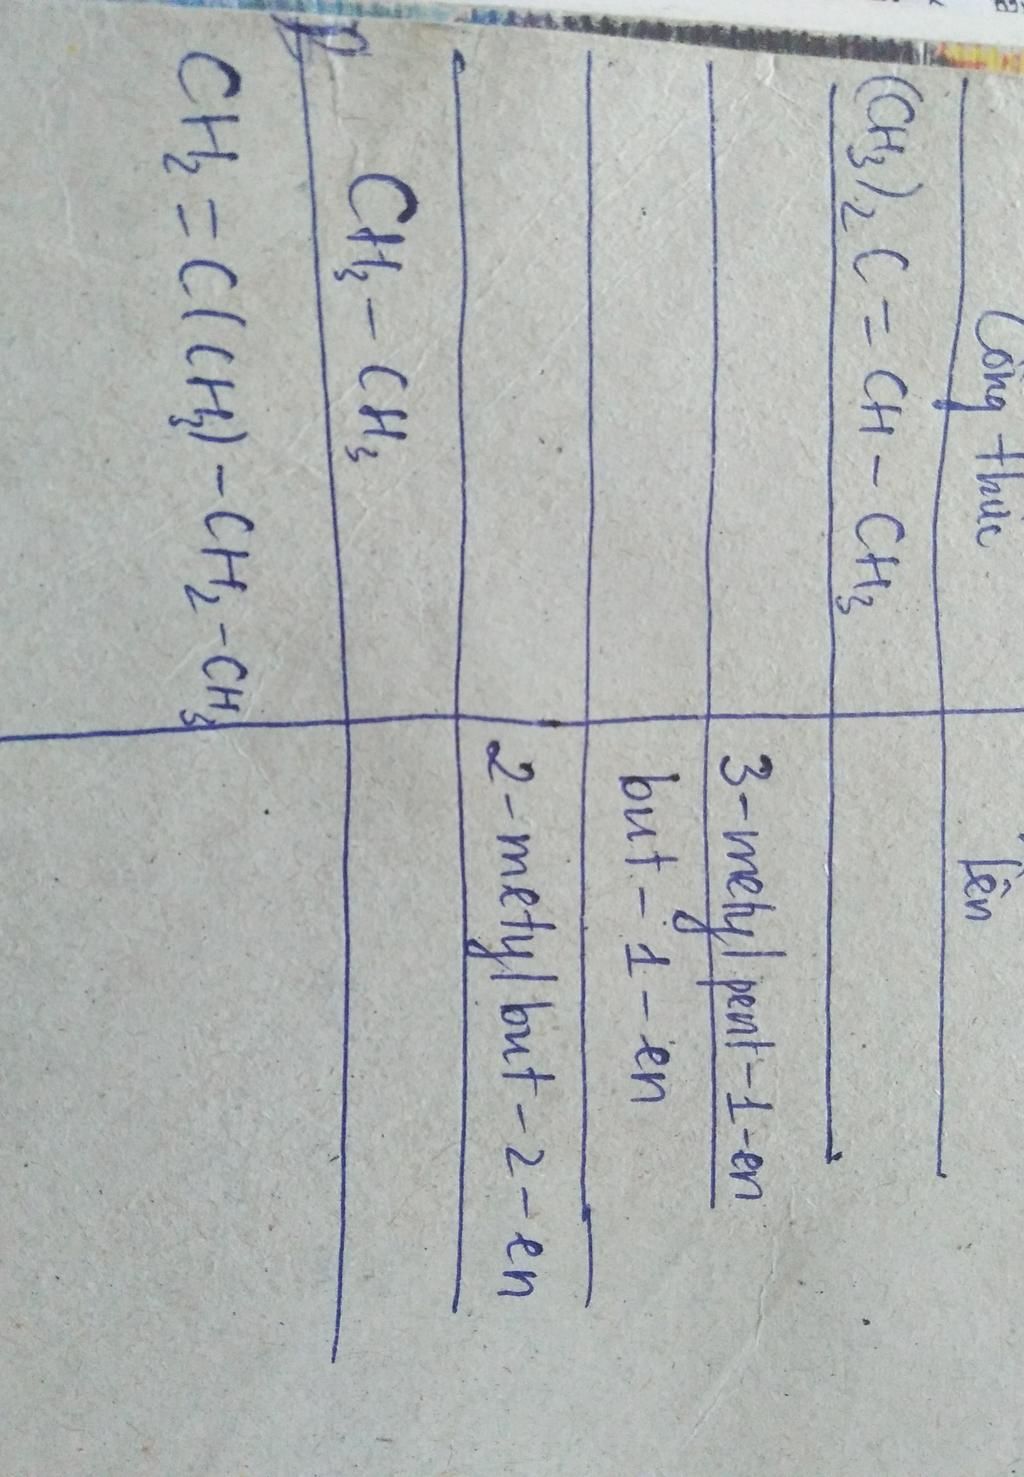 Công thức Tên
(CH₃)₂C = CH - CH₃
3-metyl pent-1-en
but - 1 - en
2-metyl but - 2 - en
CH₃ - CH₃
CH₂ = C(CH₃) - CH₂ - CH₃